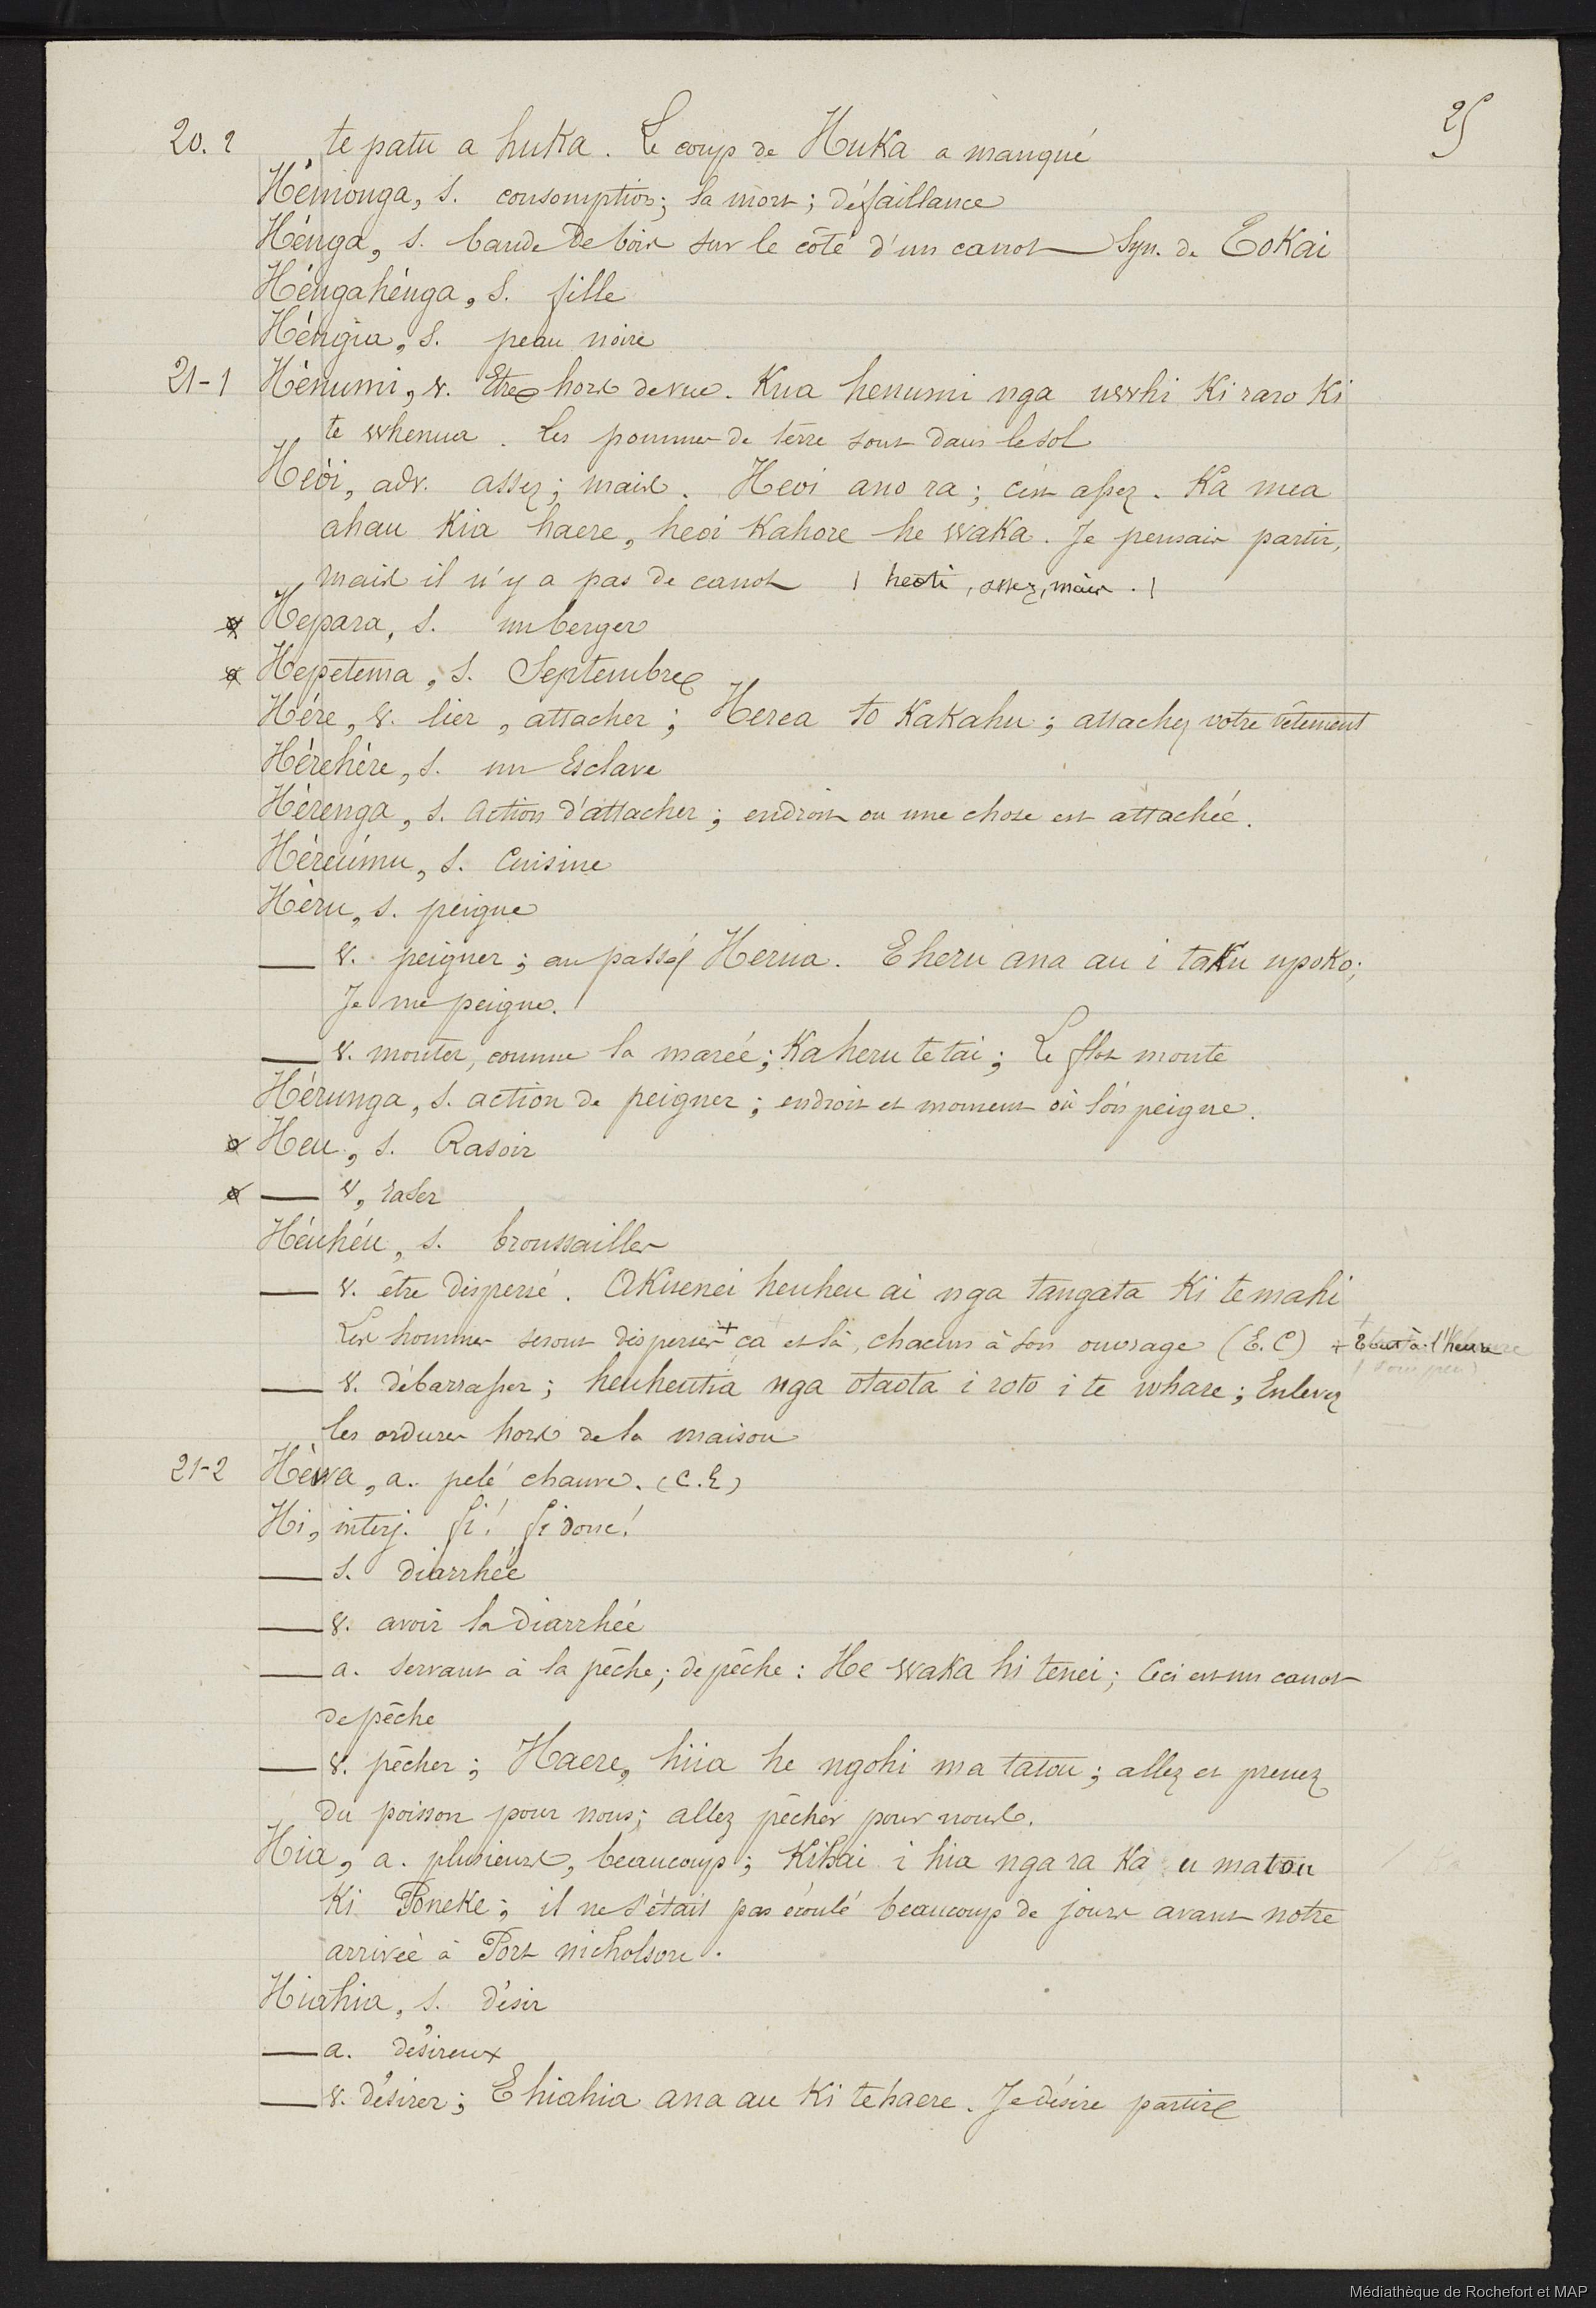 25
20. 2 te patu a huka. Le coup de Huka a manqué
Hémonga, s. consomption; la mort; défaillance
Hénga, s. bande de bois sur le côté d'un canot Syn. de Eokai
Héngahénga, s. fille
Héngia, s. peau noire
21-1 Hènumi, v. Etre hors de vue. Kua henumi nga uwhi Ki raro Ki
te whenua. Les pommes de terre sont dans le sol
Heòi, adv. assez; mais. Heoi ano ra; c'est assez. Ka mea
ahau Kia haere, heoi Kahore he waka. Je pensais partir,
mais il n'y a pas de canot ( heoti, assez, mais. )
Hepara, s. un berger
Hepetema, s. Septembre
Hére, v. lier, attacher; Herea to Kakahu; attachez votre vêtement
Hérehère, s. un Esclave
Hèrenga, s. action d'attacher; endroit ou une chose est attachée.
Hèreùmu, s. Cuisine
Hèru, s. peigne
— v. peigner; au passif Herua. E heru ana au i taku upoko;
Je me peigne.
— v. monter, comme la marée; Ka heru te tai; Le flot monte
Hérunga, s. action de peigner; endroit et moment où l'on peigne.
Heu, s. Rasoir
— v, raser
Héuhéu, s. broussailles
— v. être dispersé. Akuenei heuheu ai nga tangata Ki te mahi
Les hommes seront dispersés + ça et là, chacun à son ouvrage (E.C) + Tout à l'heure
( sous peu )
— v. débarrasser; heuheutia nga otaota i roto i te whare; Enlevez
les ordures hors de la maison
21-2 Hèwa, a. pelé chauve. (C.E)
Hi, interj. fi! fi donc!
— s. diarrhée
— v. avoir la diarrhée
— a. servant à la pêche; de pêche: He waka hi tenei; Ceci est un canot
de pêche
— v. pêcher; Haere, hiia he ngohi ma tatou; allez et prenez
du poisson pour nous; allez pêcher pour nous.
Hia, a. plusieurs, beaucoup; Kihai i hia nga ra Ka u matou
Ki Poneke; il ne s'était pas écoulé beaucoup de jours avant notre
arrivée à Port nicholson.
Hiahia, s. désir
— a. désireux
— v. désirer; E hiahia ana au Ki te haere. Je désire partir
Médiathèque de Rochefort et MAP